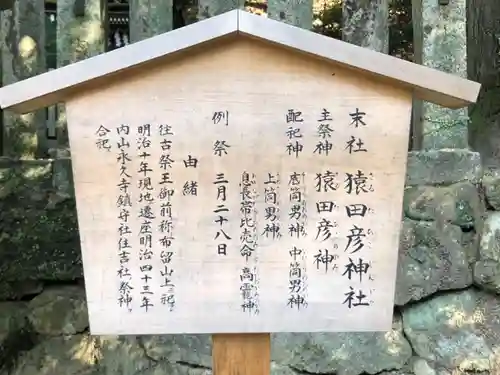 末社 猿田彦神社
さるたひこじんじゃ
主祭神 猿田彦神
配祀神 底筒男神 中筒男神
上筒男神
息長帯比売命 高靇神
例祭 三月二十八日
由緒
往古祭王御前称布留山上ニ祀ル
明治十年現地遷座明治四十三年
内山永久寺鎮守社住吉社ノ祭神ヲ
合祀ス